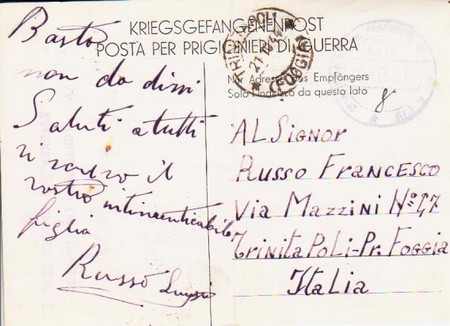 KRIEGSGEFANGENENPOST
POSTA PER PRIGIONIERI DI GUERRA
TRINITAPOLI
(FOGGIA)
Nur Adresse des Empfängers
Solo l'indirizzo da questo lato
8
Basta
non do dirsi
Saluti a tutti
il
vostro
figlia
Russo Luigi
AL SIGNOR
RUSSO FRANCESCO
VIA MAZZINI Nº 47
TRINITAPOLI-PR. FOGGIA
ITALIA